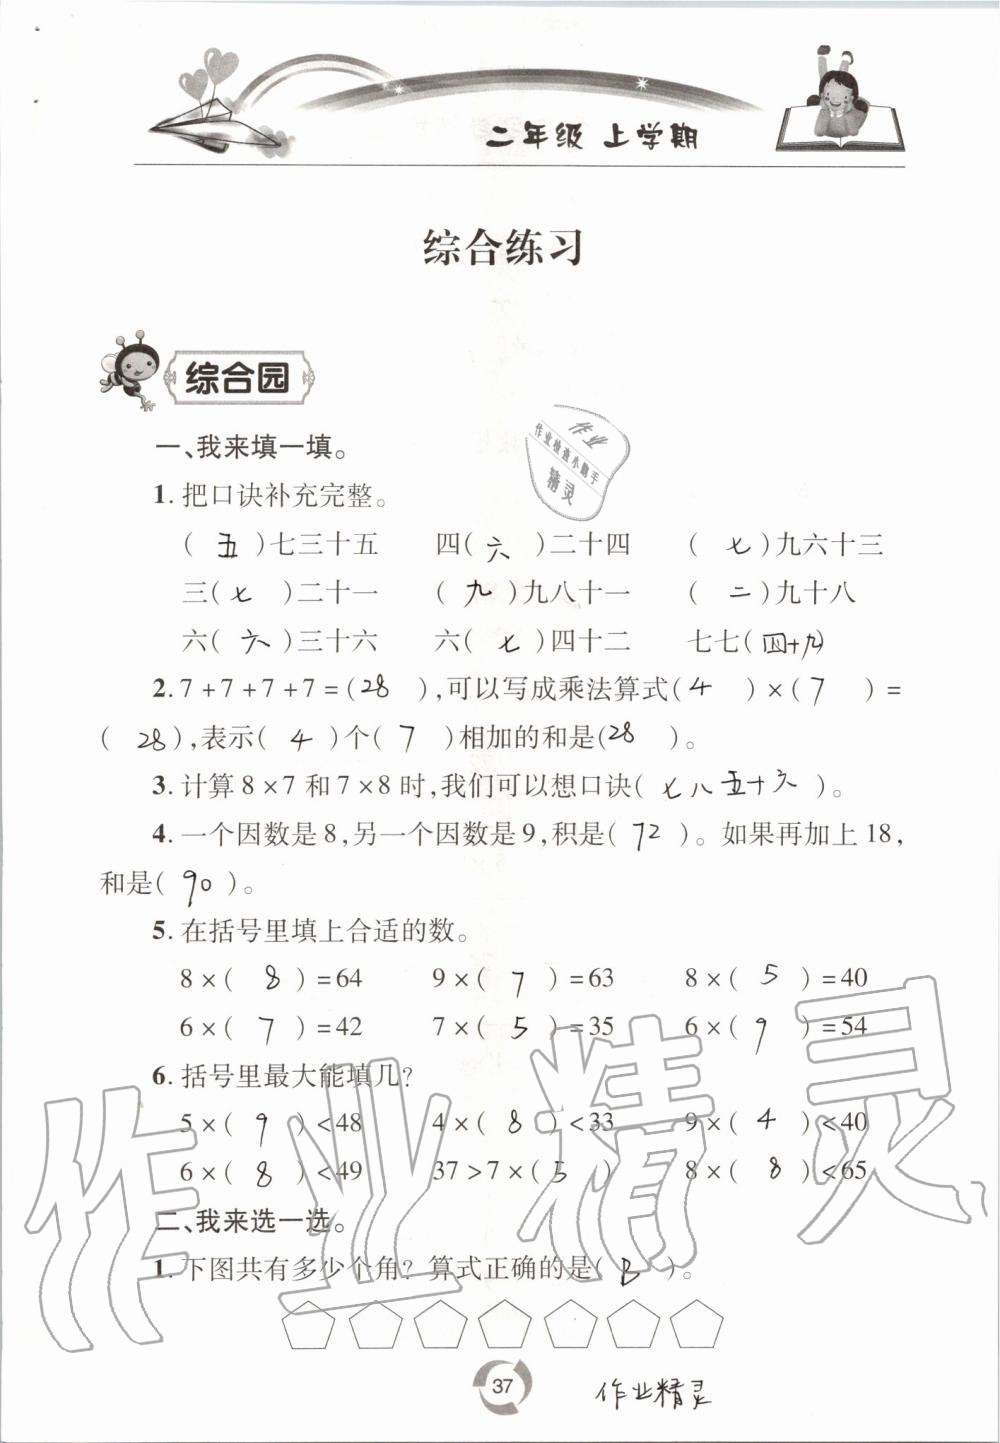 二年级 上学期
综合练习
综合园
作业
作业检查小助手
精灵
一、我来填一填。
1. 把口诀补充完整。
(五)七三十五 四(六)二十四 (七)九六十三
三(七)二十一 (九)九八十一 (二)九十八
六(六)三十六 六(七)四十二 七七(四十九)
2. 7+7+7+7=(28),可以写成乘法算式(4)×(7)=
(28),表示(4)个(7)相加的和是(28)。
3. 计算8×7和7×8时,我们可以想口诀(七八五十六)。
4. 一个因数是8,另一个因数是9,积是(72)。如果再加上18,
和是(90)。
5. 在括号里填上合适的数。
8×(8)=64 9×(7)=63 8×(5)=40
6×(7)=42 7×(5)=35 6×(9)=54
6. 括号里最大能填几?
5×(9)<48 4×(8)<33 9×(4)<40
6×(8)<49 37>7×(5) 8×(8)<65
二、我来选一选。
1. 下图共有多少个角? 算式正确的是(B)。
37
作业精灵
作业精灵